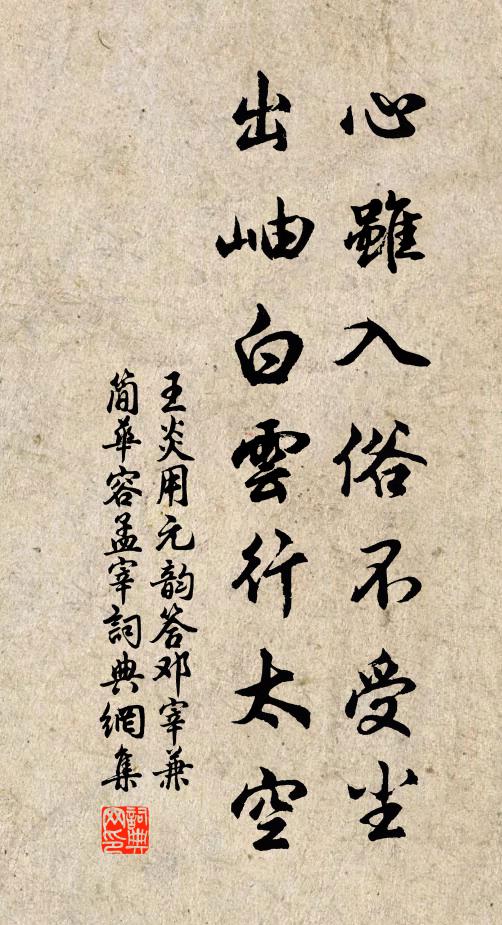 心雖入俗不受尘
出岫白雲行太空
王炎用元韵答邓宰兼
简華容孟宰詞典網集
詞典网印